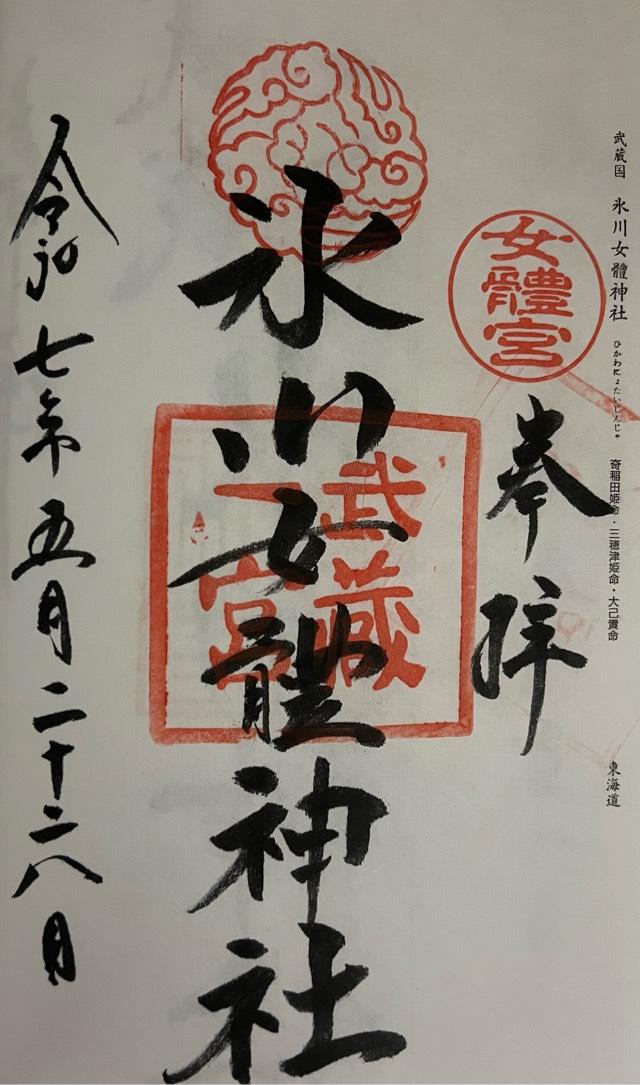 武蔵国 氷川女體神社 ひかわにょたいじんじゃ 奇稲田姫命・三穂津姫命・大己貴命 東海道
女體宮
奉拝
武蔵
一宮
氷川女體神社
令和七年五月二十二八日